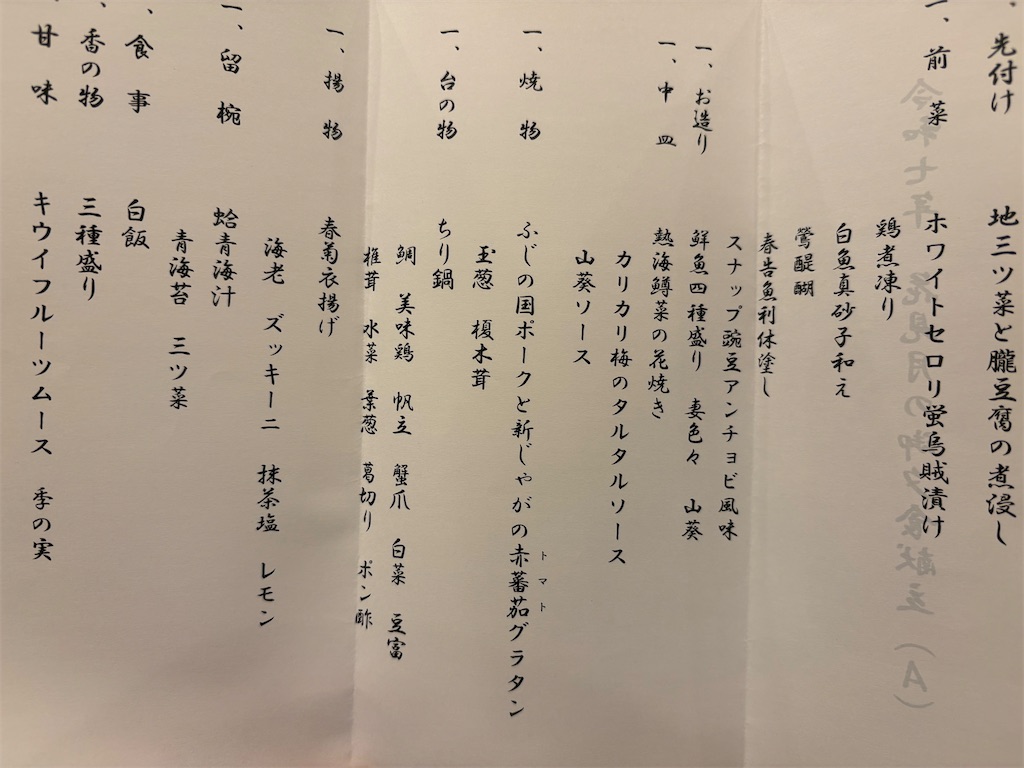 、先付け　地三ツ菜と朧豆腐の煮浸し
一、前菜　ホワイトセロリ蛍烏賊漬け
令和七年　花見月の御夕食献立（A）
鶏煮凍り
白魚真砂子和え
鶯醍醐
春告魚利休塗し
スナップ豌豆アンチョビ風味
一、お造り　鮮魚四種盛り　妻色々　山葵
一、中皿　熱海鱒菜の花焼き
カリカリ梅のタルタルソース
山葵ソース
一、焼物　ふじの国ポークと新じゃがの赤蕃茄グラタン
トマト
玉葱　榎木茸
一、台の物　ちり鍋
鯛　美味鶏　帆立　蟹爪　白菜　豆富
椎茸　水菜　葉葱　葛切り　ポン酢
一、揚物　春菊衣揚げ
海老　ズッキーニ　抹茶塩　レモン
一、留椀　蛤青海汁
青海苔　三ツ菜
、食事　白飯
、香の物　三種盛り
、甘味　キウイフルーツムース　季の実